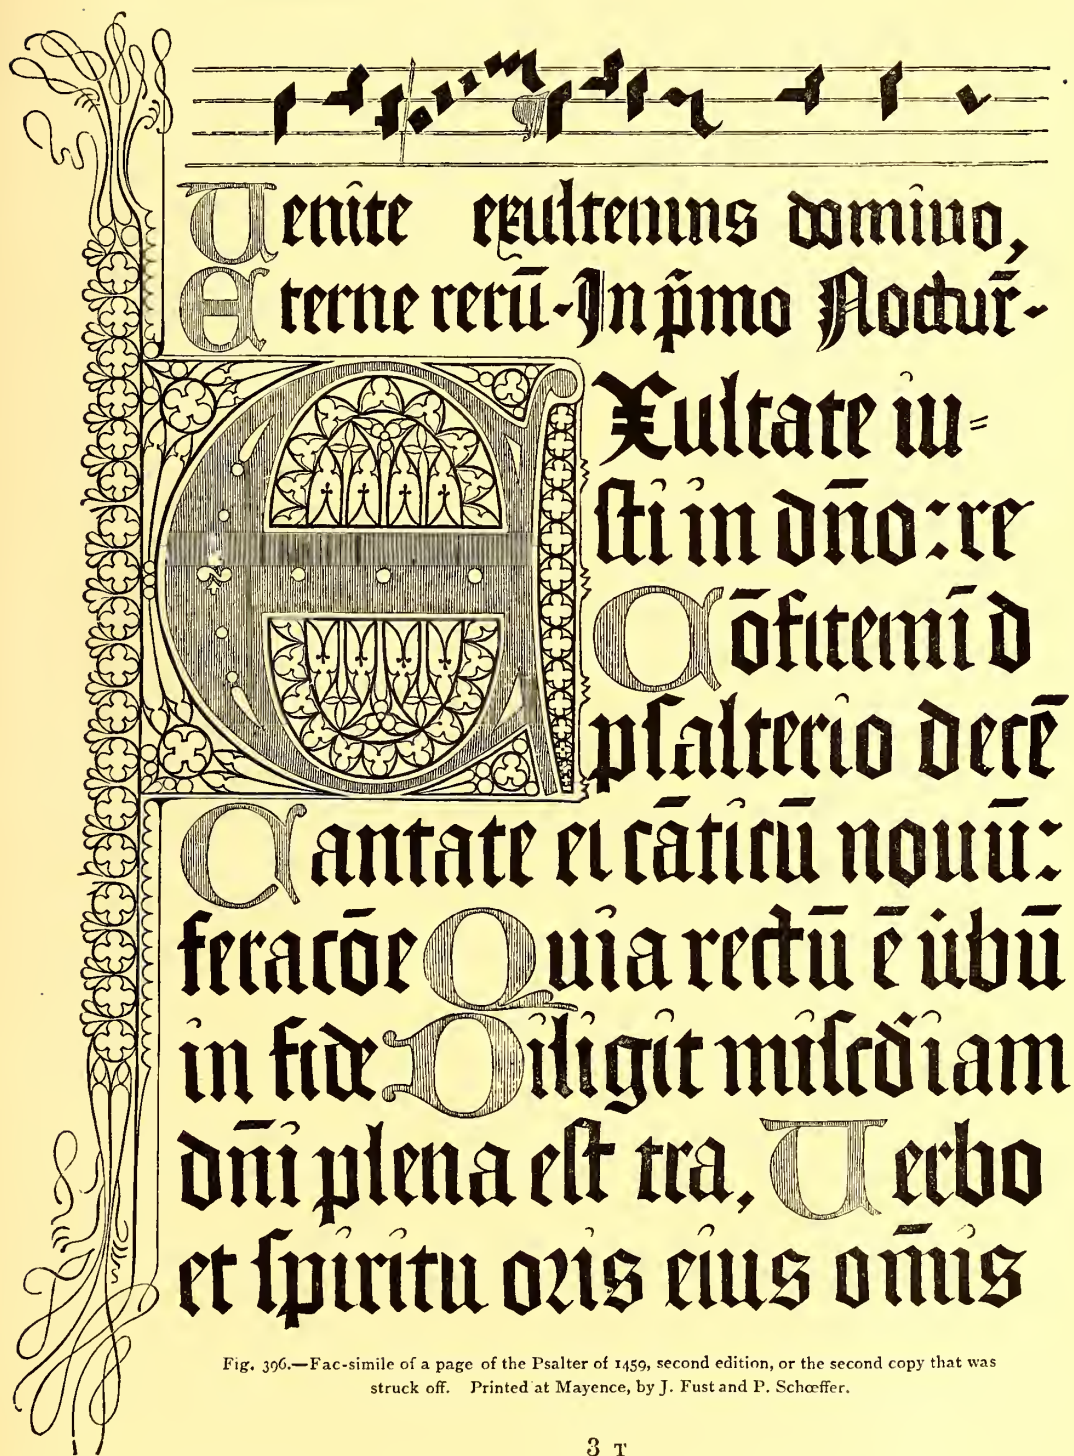 Uenite exultemus domino,
Eterne rerū. In p̄mo Nocturr̄.
EXultate iu⸗
sti in dn̄o: re
Cōfitemī d
psalterio decē
Cantate ei cāticū nouū:
feracōe Quia rectū ē ūbū
in fide Diligit misc̄diam
dn̄i plena est tra, Uerbo
et spiritu oris eius om̄is
Fig. 396.—Fac-simile of a page of the Psalter of 1459, second edition, or the second copy that was
struck off. Printed at Mayence, by J. Fust and P. Schœffer.
3 T